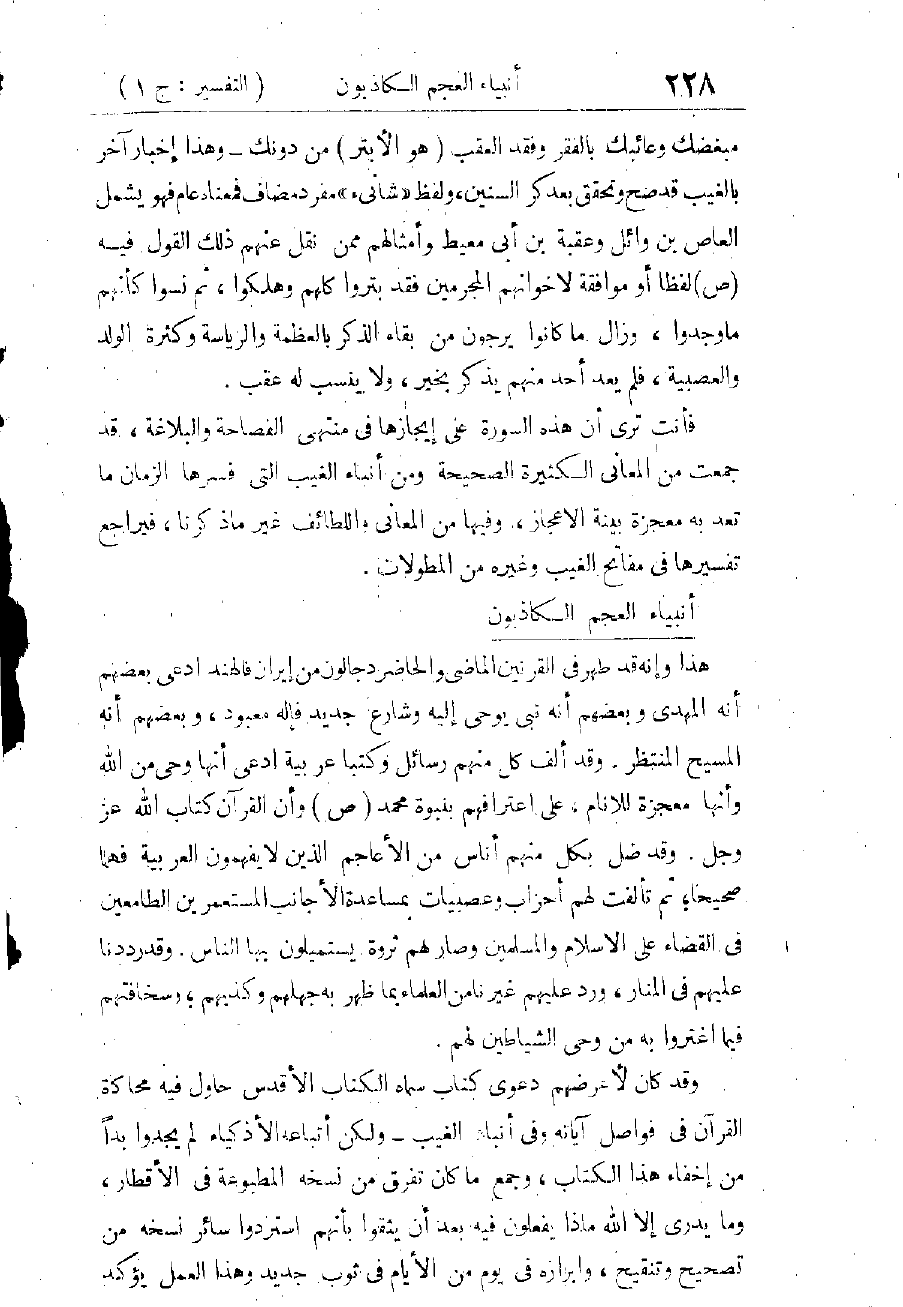 ٢٢٨ أنبياء العجم الكاذبون ( التفسير : ج ١ )
مبغضك وعائبك بالفقر وفقد العقب ( هو الأبتر ) من دونك ــ وهذا إخبار آخر
بالغيب قد صح وتحقق بعد كر السنين ، ولفظ «شانىء» مفرد مضاف فمعناه عام فهو يشمل
العاص بن وائل وعقبة بن أبى معيط وأمثالهم ممن نقل عنهم ذلك القول فيه
(ص) لفظا أو موافقة لاخوانهم المجرمين فقد بتروا كلهم وهلكوا ، ثم نسوا كأنهم
ماوجدوا ، وزال ما كانوا يرجون من بقاء الذكر بالعظمة والرياسة وكثرة الولد
والعصبية ، فلم يعد أحد منهم يذكر بخير ، ولا ينسب له عقب .
فأنت ترى أن هذه السورة على إيجازها فى منتهى الفصاحة والبلاغة ، قد
جمعت من المعانى الكثيرة الصحيحة ومن أنباء الغيب التى فسرها الزمان ما
تعد به معجزة بينة الاعجاز ، وفيها من المعانى واللطائف غير ماذكرنا ، فيراجع
تفسيرها فى مفاتح الغيب وغيره من المطولات .
أنبياء العجم الكاذبون
هذا وإنه قد ظهر فى القرنين الماضى والحاضر دجالون من إيران فالهند ادعى بعضهم
أنه المهدى وبعضهم أنه نبى يوحى إليه وشارع جديد فإله معبود ، وبعضهم أنه
المسيح المنتظر . وقد ألف كل منهم رسائل وكتبا عربية ادعى أنها وحى من الله
وأنها معجزة للانام ، على اعترافهم بنبوة محمد ( ص ) وأن القرآن كتاب الله عز
وجل . وقد ضل بكل منهم أناس من الأعاجم الذين لا يفهمون العربية فهما
صحيحا، ثم تألفت لهم أحزاب وعصبيات بمساعدة الأجانب المستعمرين الطامعين
فى القضاء على الاسلام والمسلمين وصار لهم ثروة يستميلون بها الناس . وقد رددنا
عليهم فى المنار ، ورد عليهم غيرنا من العلماء بما ظهر به جهلهم وكذبهم ، وسخافتهم
فيما اغتروا به من وحى الشياطين لهم .
وقد كان لأعرضهم دعوى كتاب سماه الكتاب الأقدس حاول فيه محاكاة
القرآن فى فواصل آياته وفى أنباء الغيب ــ ولكن أتباعه الأذكياء لم يجدوا بداً
من إخفاء هذا الكتاب ، وجمع ما كان تفرق من نسخه المطبوعة فى الأقطار ،
وما يدرى إلا الله ماذا يفعلون فيه بعد أن يثقوا بأنهم استردوا سائر نسخه من
تصحيح وتنقيح ، وابرازه فى يوم من الأيام فى ثوب جديد وهذا العمل يؤكد